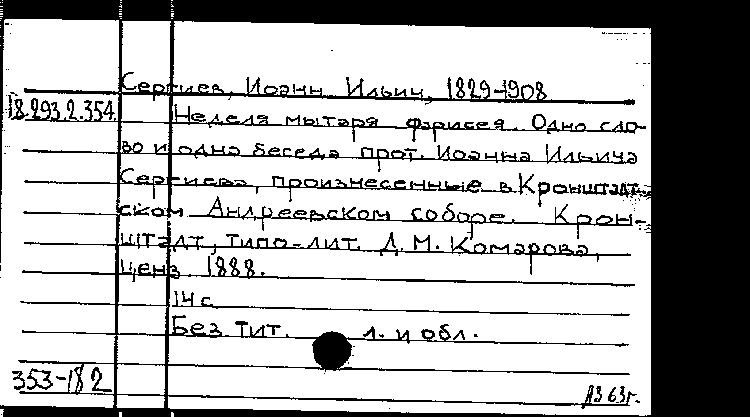 Сергиев, Иоанн Ильич, 1829-1908
18.293.2.354.
Неделя мытаря фарисея. Одно сло-
во и одна беседа прот. Иоанна Ильича
Сергиева, произнесенные в Кронштадт-
ском Андреевском соборе. Крон-
штадт, типо-лит. Д. М. Комарова,
ценз. 1888.
14 с
Без тит. л. и обл.
353-182